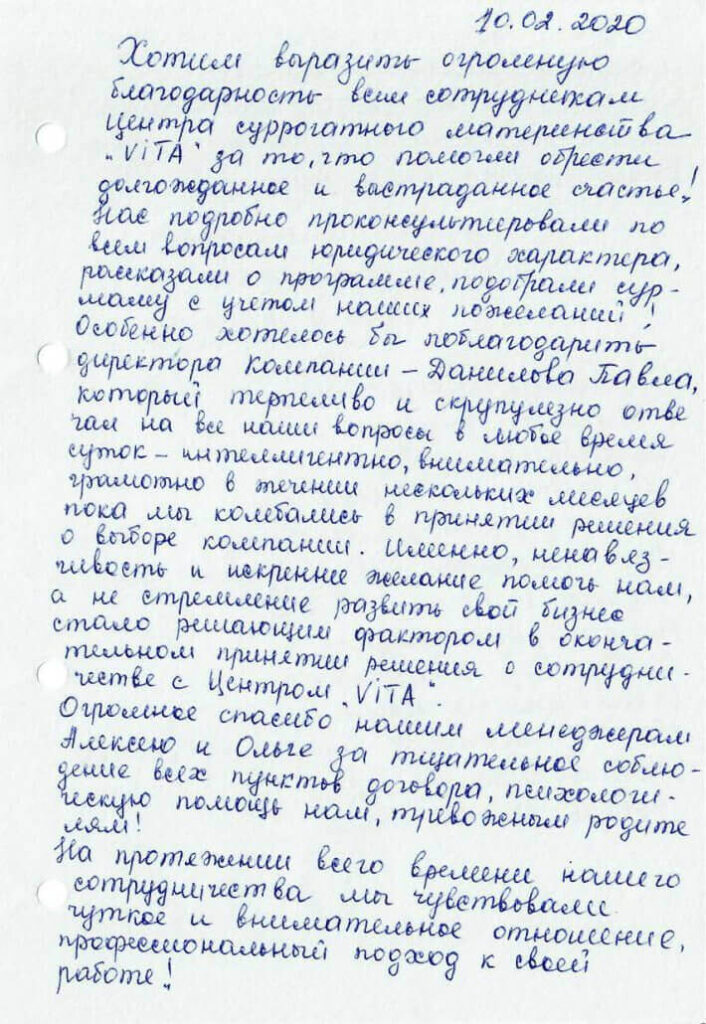 10.02.2020
Хотим выразить огромную
благодарность всем сотрудникам
центра суррогатного материнства
„ViTA“ за то, что помогли обрести
долгожданное и выстраданное счастье!
Нас подробно проконсультировали по
всем вопросам юридического характера,
рассказали о программе, подобрали сур-
маму с учетом наших пожеланий!
Особенно хотелось бы поблагодарить
директора компании – Данилова Павла,
который терпеливо и скрупулезно отве
чал на все наши вопросы в любое время
суток – интеллигентно, внимательно,
грамотно в течении нескольких месяцев
пока мы колебались в принятии решения
о выборе компании. Именно, ненавяз-
чивость и искреннее желание помочь нам,
а не стремление развить свой бизнес
стало решающим фактором в оконча-
тельном принятии решения о сотрудни-
честве с Центром „ViTA“.
Огромное спасибо нашим менеджерам
Алексею и Ольге за тщательное соблю-
дение всех пунктов договора, психологи-
ческую помощь нам, тревожным родите
лям!
На протяжении всего времени нашего
сотрудничества мы чувствовали
чуткое и внимательное отношение,
профессиональный подход к своей
работе!